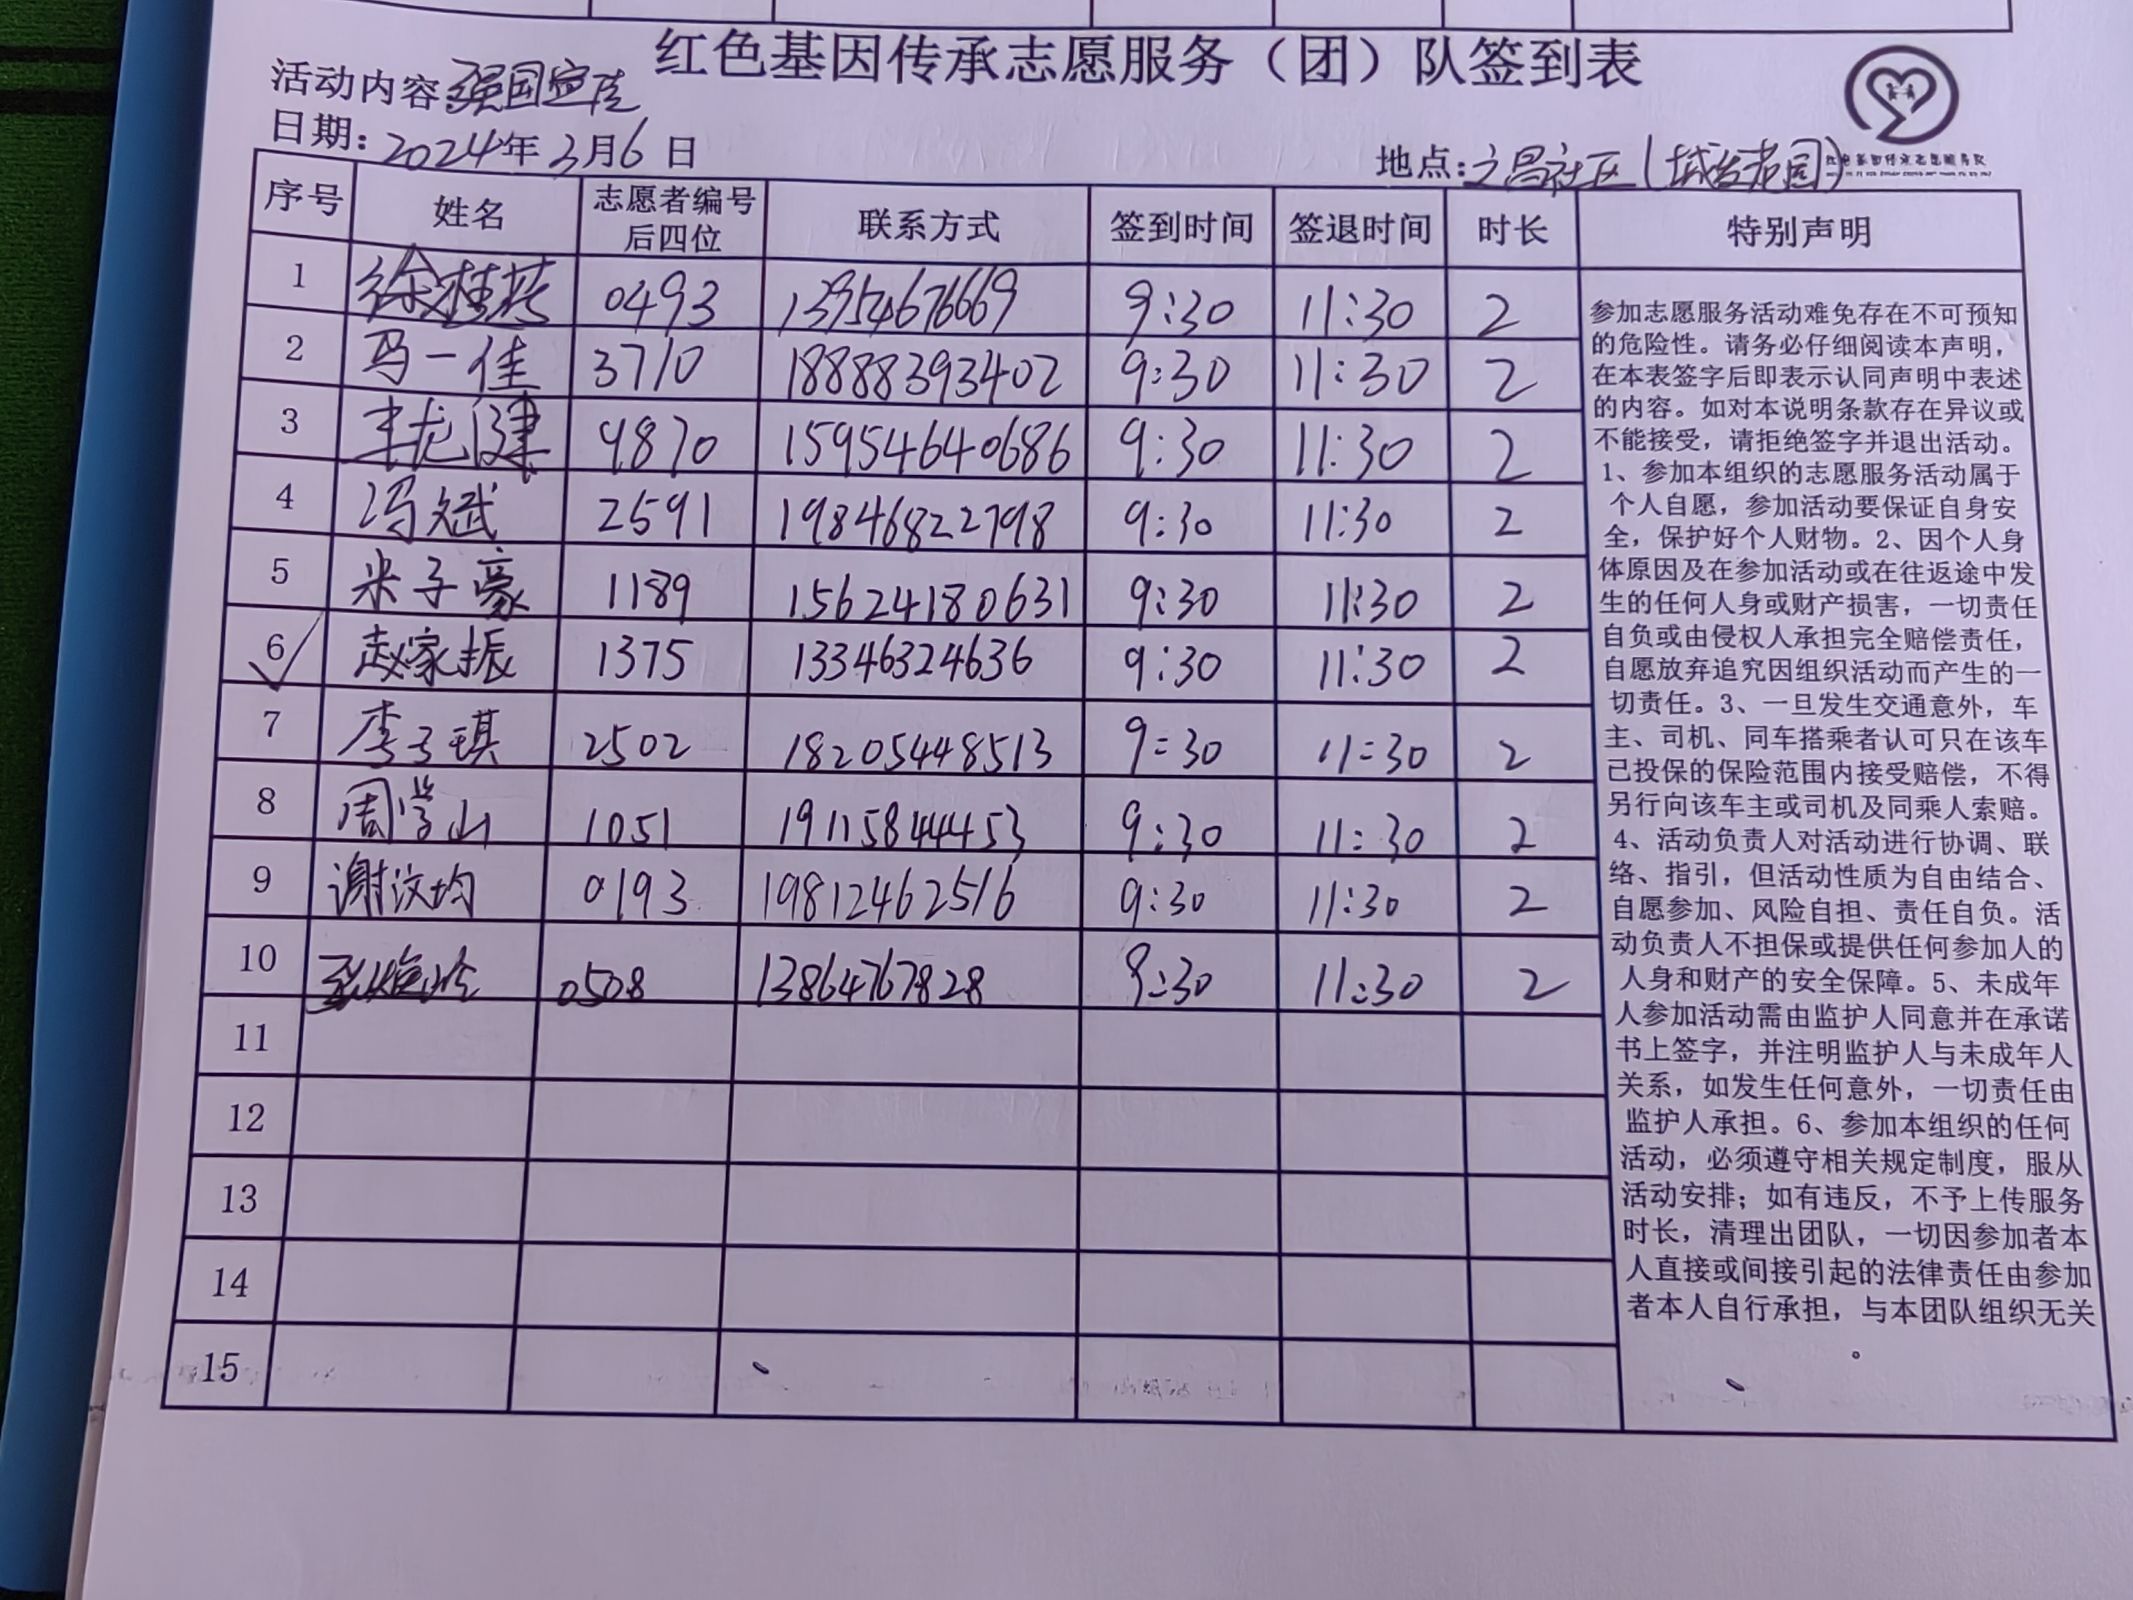 红色基因传承志愿服务（团）队签到表
活动内容 强国宣传
日期：2024年3月6日
地点：文昌社区（城发花园）
序号 姓名 志愿者编号后四位 联系方式 签到时间 签退时间 时长 特别声明
1 徐桂芬 0493 13954676669 9:30 11:30 2
2 马一佳 3710 18888393402 9:30 11:30 2
3 龙健 9870 15954640686 9:30 11:30 2
4 冯斌 2591 19846822798 9:30 11:30 2
5 米子豪 1189 15624180631 9:30 11:30 2
6 赵家振 1375 13346324636 9:30 11:30 2
7 李子琪 2502 18205448513 9:30 11:30 2
8 周学山 1051 19115844453 9:30 11:30 2
9 谢汶均 0193 19812462516 9:30 11:30 2
10 0508 13864767828 9:30 11:30 2
11
12
13
14
15
参加志愿服务活动难免存在不可预知
的危险性。请务必仔细阅读本声明，
在本表签字后即表示认同声明中表述
的内容。如对本说明条款存在异议或
不能接受，请拒绝签字并退出活动。
1、参加本组织的志愿服务活动属于
个人自愿，参加活动要保证自身安
全，保护好个人财物。2、因个人身
体原因及在参加活动或在往返途中发
生的任何人身或财产损害，一切责任
自负或由侵权人承担完全赔偿责任，
自愿放弃追究因组织活动而产生的一
切责任。3、一旦发生交通意外，车
主、司机、同车搭乘者认可只在该车
已投保的保险范围内接受赔偿，不得
另行向该车主或司机及同乘人索赔。
4、活动负责人对活动进行协调、联
络、指引，但活动性质为自由结合、
自愿参加、风险自担、责任自负。活
动负责人不担保或提供任何参加人的
人身和财产的安全保障。5、未成年
人参加活动需由监护人同意并在承诺
书上签字，并注明监护人与未成年人
关系，如发生任何意外，一切责任由
监护人承担。6、参加本组织的任何
活动，必须遵守相关规定制度，服从
活动安排；如有违反，不予上传服务
时长，清理出团队，一切因参加者本
人直接或间接引起的法律责任由参加
者本人自行承担，与本团队组织无关
。